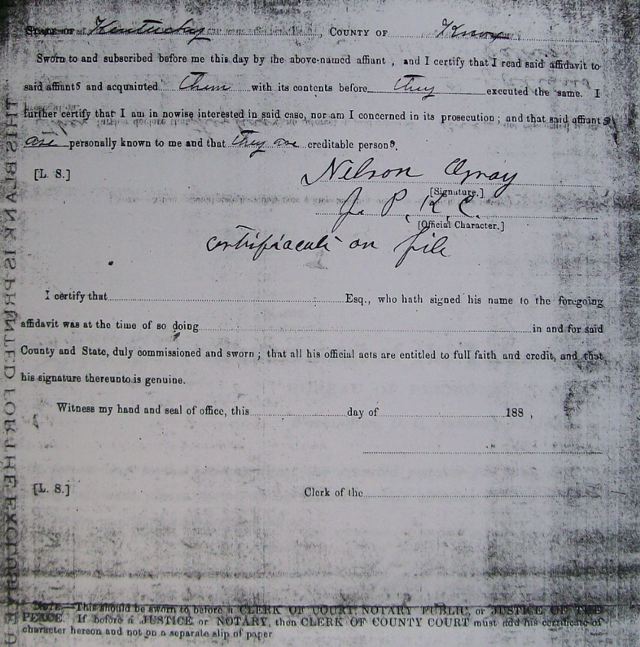 State of Kentucky, COUNTY OF Knox
Sworn to and subscribed before me this day by the above-named affiant, and I certify that I read said affidavit to
said affiants and acquainted them with its contents before they executed the same. I
further certify that I am in nowise interested in said case, nor am I concerned in its prosecution; and that said affiants
are personally known to me and that they are creditable persons.
[L. S.] Nelson Gray
[Signature.]
J. P. K. C.
[Official Character.]
certificate on file
I certify that Esq., who hath signed his name to the foregoing
affidavit was at the time of so doing in and for said
County and State, duly commissioned and sworn; that all his official acts are entitled to full faith and credit, and that
his signature thereunto is genuine.
Witness my hand and seal of office, this day of 188 ,
[L. S.] Clerk of the
NOTE.—This should be sworn to before a CLERK OF COURT, NOTARY PUBLIC, or JUSTICE OF THE
PEACE. If before a JUSTICE or NOTARY, then CLERK OF COUNTY COURT must add his certificate of
character hereon and not on a separate slip of paper
THIS BLANK IS PRINTED FOR THE